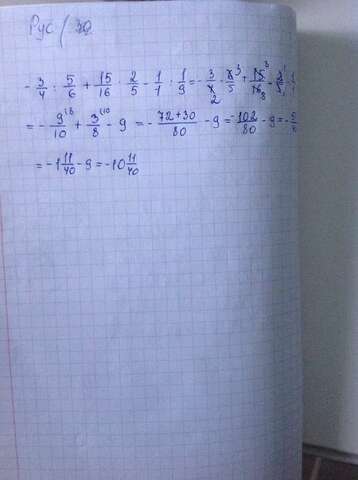 Рус /
- 3/4 : 5/6 + 15/16 · 2/5 - 1/1 : 1/9 = - 3/4 · 6/5 + 15/16 · 2/5 -
= - 9/10 + 3/8 - 9 = - 72+30/80 - 9 = - 102/80 - 9 = -
= - 1 11/40 - 9 = - 10 11/40